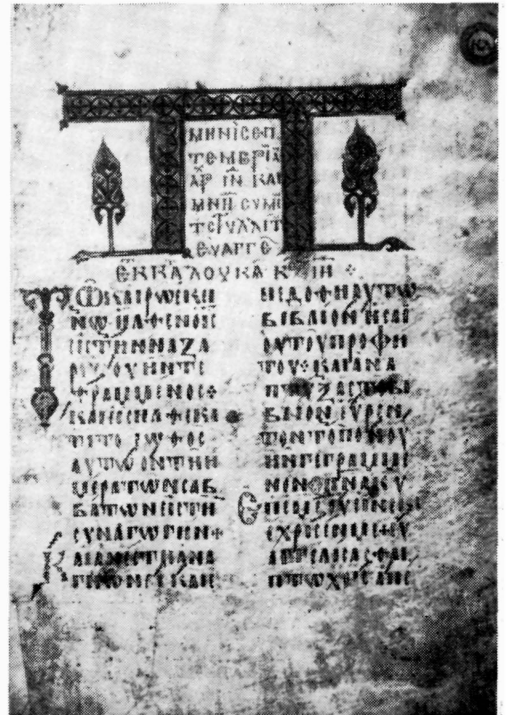 ΜΗΝΙ CΕΠ
ΤΕΜΒΡΙΩ
ΚΑΙ
CΥΜΕ
ΕΥΑΓΓΕ
ΕΚ ΚΑΤΑ ΛΟΥΚΑ
ΤΩ ΚΑΙΡΩ ΕΚΕΙ
ΝΩ ΗΛΘΕΝ Ο ΙC
ΕΙC ΤΗΝ ΝΑΖΑ
ΡΕΤ ΟΥ ΗΝ ΤΕ
ΘΡΑΜΜΕΝΟC +
ΚΑΙ ΕΙCΗΛΘΕ ΚΑ
ΤΑ ΤΟ ΕΙΩΘΟC
ΑΥΤΩ ΕΝ ΤΗ Η
ΜΕΡΑ ΤΩΝ CΑΒ
ΒΑΤΩΝ ΕΙC ΤΗ
CΥΝΑΓΩΓΗΝ +
ΚΑΙ ΑΝΕCΤΗ ΑΝΑ
ΓΝΩΝΑΙ ΚΑΙ Ε
ΠΕΔΟΘΗ ΑΥΤΩ
ΒΙΒΛΙΟΝ ΗCΑΙ
ΟΥ ΤΟΥ ΠΡΟΦΗ
ΤΟΥ + ΚΑΙ ΑΝΑ
ΠΤΥΞΑC ΤΟ ΒΙ
ΒΛΙΟΝ ΕΥΡΕΝ
ΤΟΝ ΤΟΠΟΝ ΟΥ
ΗΝ ΓΕΓΡΑΜΜΕ
ΝΟΝ + ΠΝΑ ΚΥ
ΕΠ ΕΜΕ ΟΥ ΕΙΝΕΚΕΝ
ΕΧΡΙCΕΝ ΜΕ + ΕΥ
ΑΓΓΕΛΙCΑCΘΑΙ
ΠΤΩΧΟΙC ΑΠΕ